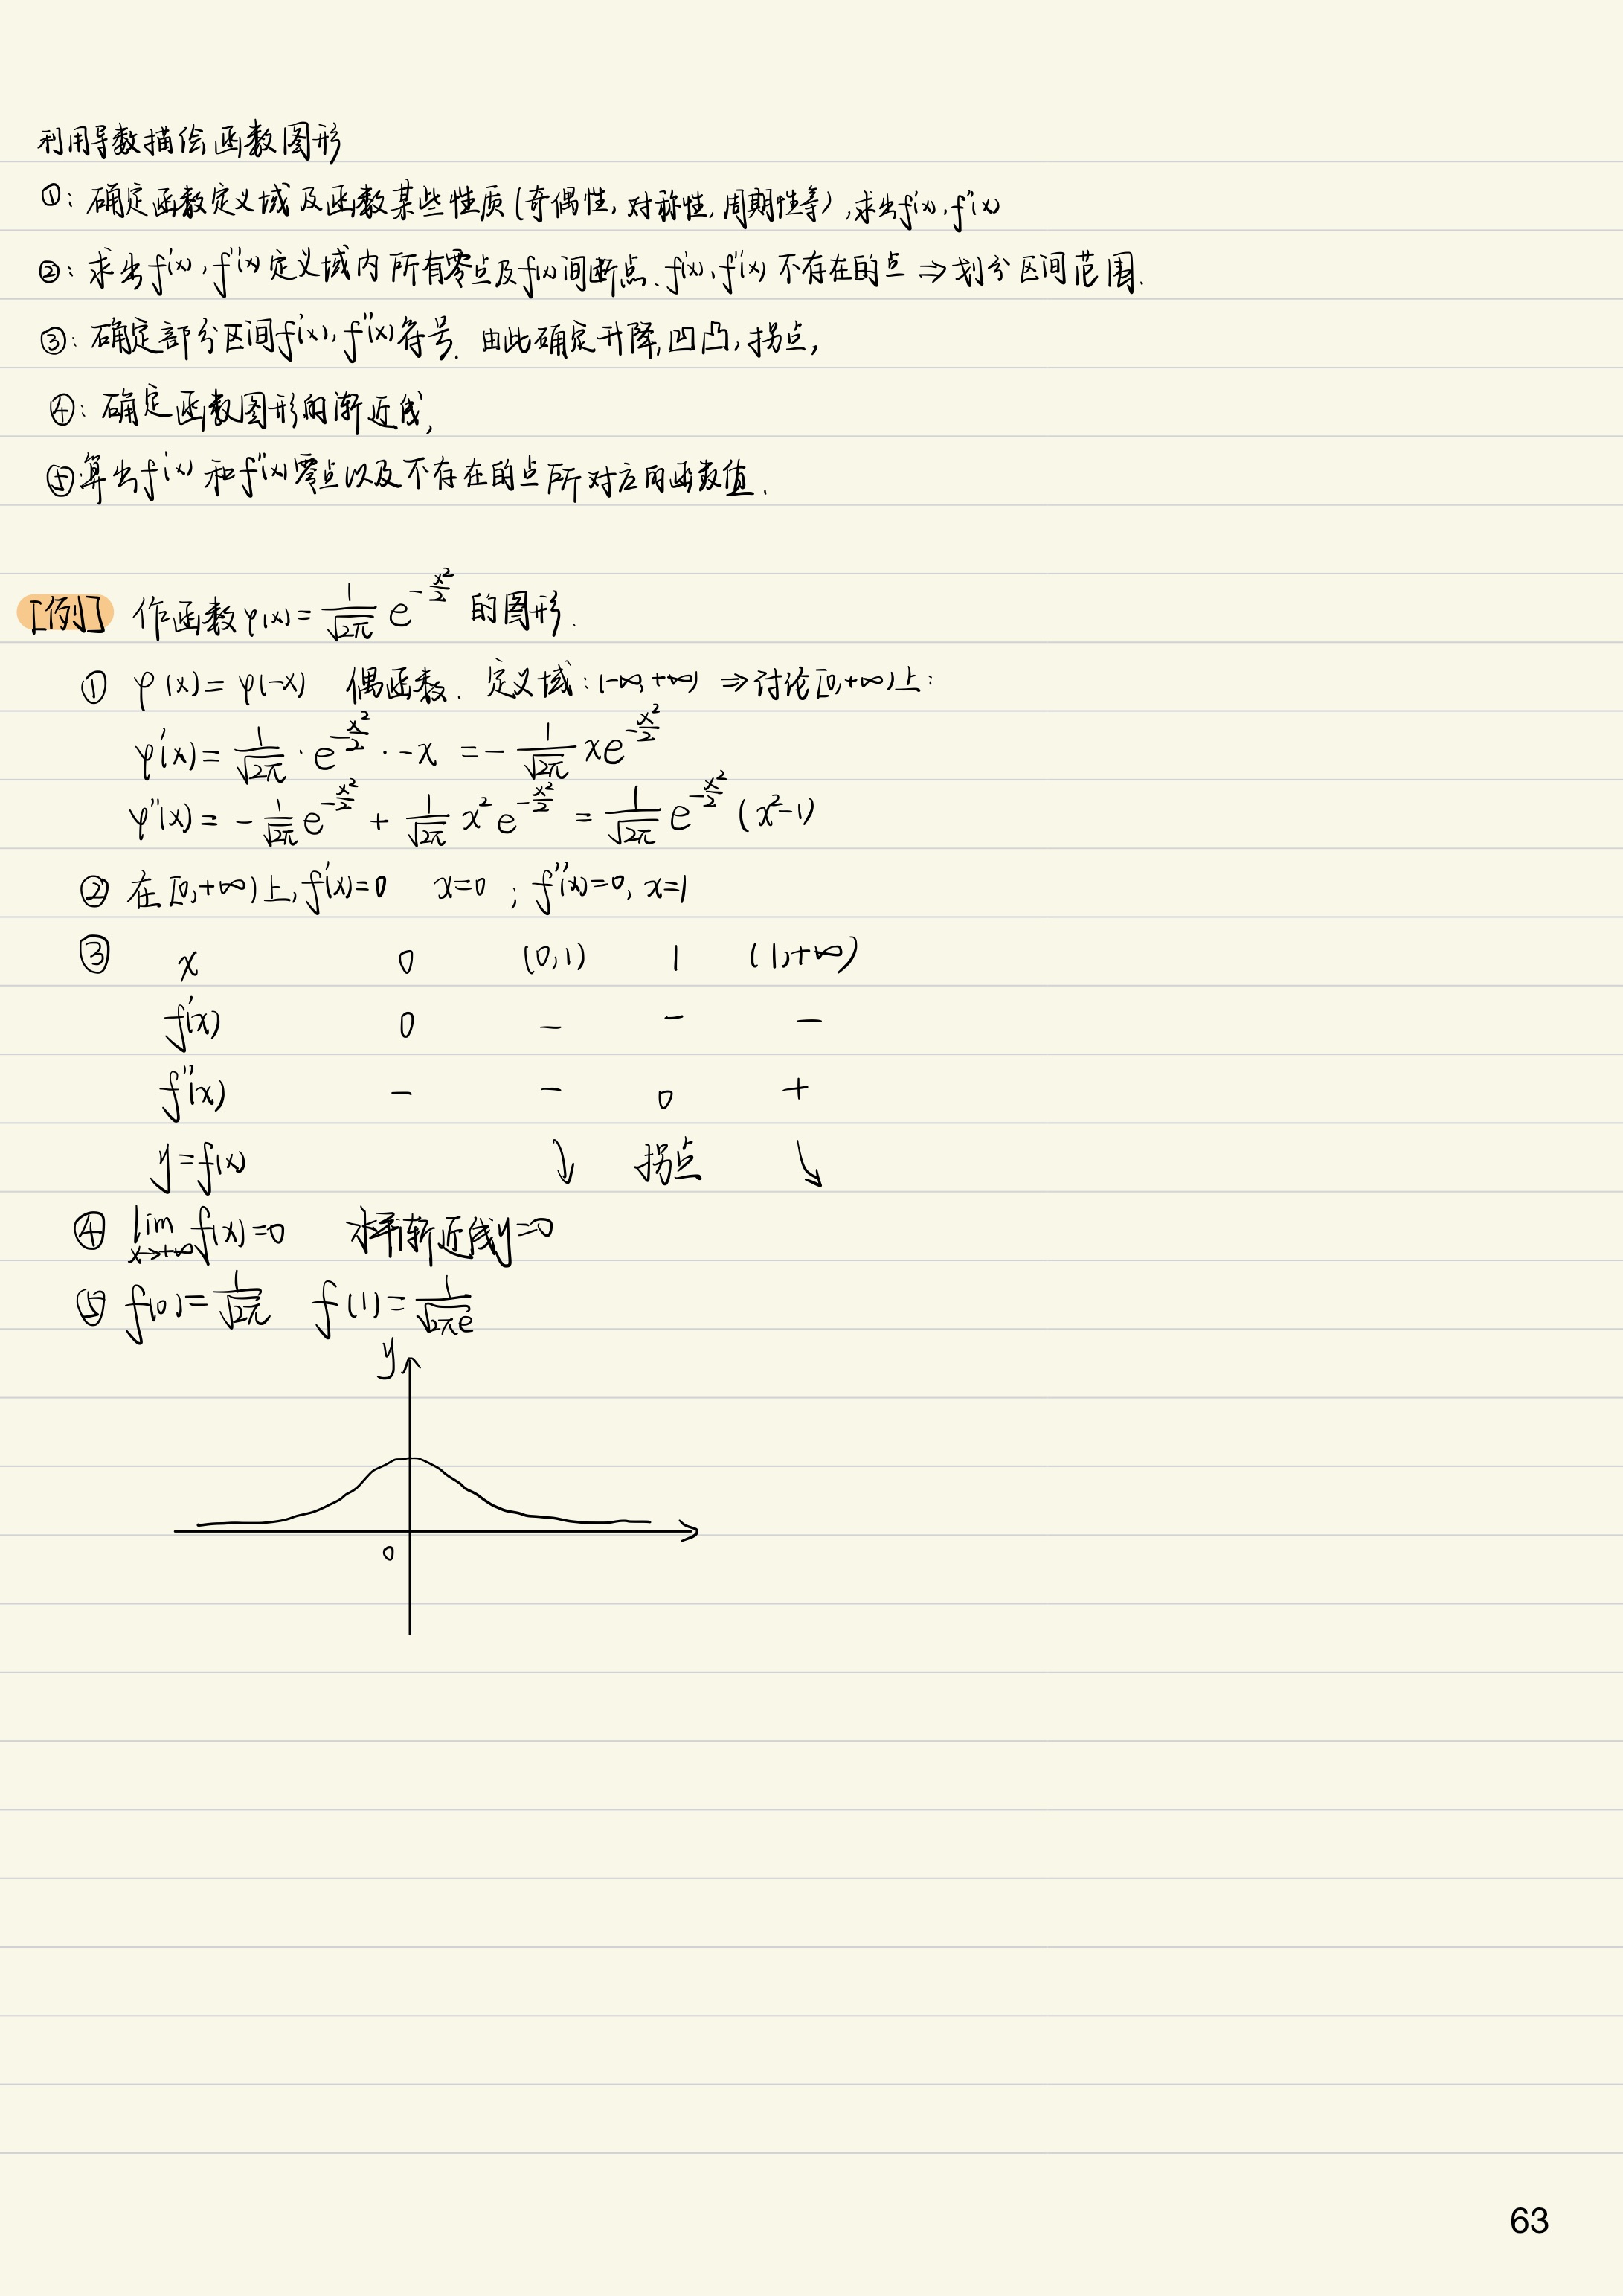 利用导数描绘函数图形
①: 确定函数定义域及函数某些性质(奇偶性, 对称性, 周期性等), 求出f'(x), f''(x)
②: 求出f'(x), f''(x)定义域内所有零点及f(x)间断点、f'(x), f''(x)不存在的点 ⇒ 划分区间范围.
③: 确定部分区间f'(x), f''(x)符号. 由此确定升降, 凹凸, 拐点,
④: 确定函数图形的渐近线,
⑤算出f'(x)和f''(x)零点以及不存在的点所对应的函数值.
[例] 作函数φ(x)=\frac{1}{\sqrt{2π}} e^{-\frac{x^2}{2}} 的图形.
① φ(x)=φ(-x) 偶函数. 定义域: (-∞,+∞) ⇒讨论[0,+∞)上:
φ'(x)=\frac{1}{\sqrt{2π}}·e^{-\frac{x^2}{2}}·-x =-\frac{1}{\sqrt{2π}}xe^{-\frac{x^2}{2}}
φ''(x)=-\frac{1}{\sqrt{2π}}e^{-\frac{x^2}{2}}+\frac{1}{\sqrt{2π}}x^2e^{-\frac{x^2}{2}}=\frac{1}{\sqrt{2π}}e^{-\frac{x^2}{2}}(x^2-1)
② 在[0,+∞)上, f'(x)=0 x=0 ; f''(x)=0, x=1
③ x 0 (0,1) 1 (1,+∞)
f'(x) 0 - - -
f''(x) - - 0 +
y=f(x) ↘ 拐点 ↘
④ \lim_{x→+∞} f(x)=0 水平渐近线y=0
⑤ f(0)=\frac{1}{\sqrt{2π}} f(1)=\frac{1}{\sqrt{2πe}}
y
0
63